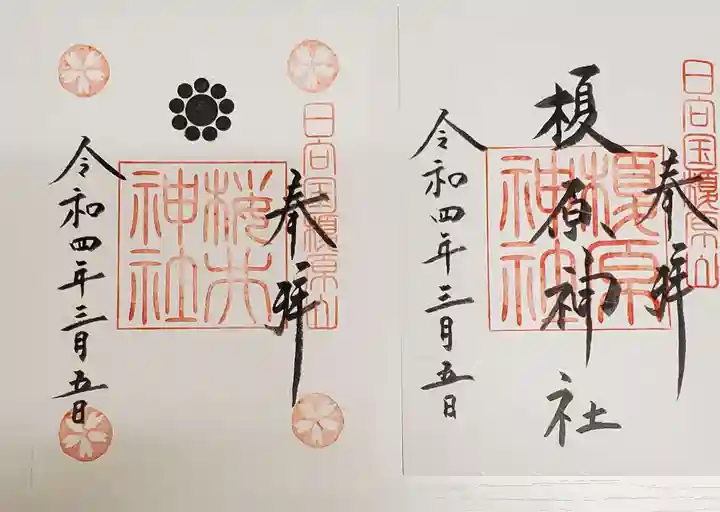 奉拝
日向国榎原山
桜井神社
令和四年三月五日
奉拝
日向国榎原山
榎原神社
榎原神社
令和四年三月五日